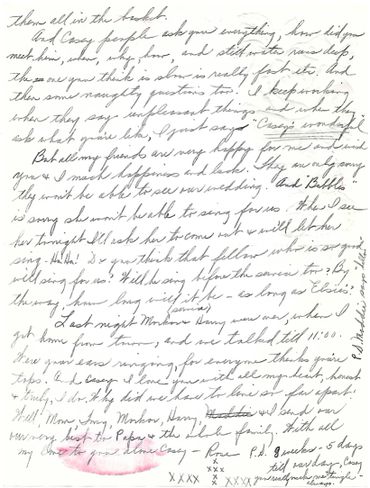 them all in the basket.
And Casey people ask your everything, how did you
meet him, when, why, how and still water runs deep,
the one you think is slow is really fast etc. And
then some naughty questions too. I keep working
when they say unpleasant things and when they
ask what you're like, I just say "Casey's wonderful"
But all my friends are very happy for me and wish
you & I much happiness and luck. They are only sorry
they won't be able to see our wedding. And Babbles
is sorry she won't be able to sing for us. When I see
her tonight I'll ask her to come out & will let her
sing - Ha Ha! Do you think that fellow who is so good
will sing for us? Will he sing before the service too? By
the way, how long will it be - as long as Elsie's?
(service)
Last night Harry were over, when I
got home from town, and we talked till 11:00.
Were your ears ringing, for everyone thinks you're
tops. And Casey I love you with all my heart, honest
& truly, I do. Why did we have to live so far apart?
Well, Mom, Harry, & I send our
our very best to Papa & the whole family. With all
my love to you alone Casey - Rose P.S. 3 weeks - 5 days
till our day, Casey
you really make me tingle -
always.
xxx
x x xxxx
P.S. says "Hello"